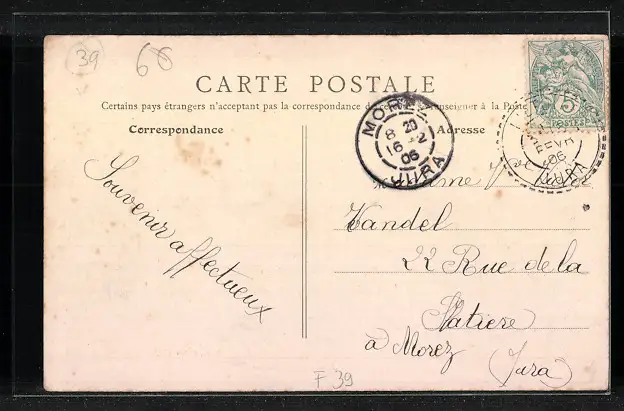 39
60
CARTE POSTALE
Certains pays étrangers n'acceptant pas la correspondance
se renseigner à la Poste
Correspondance
Adresse
MOREZ
8 20
16 -2
06
JURA
5
POSTES
FEVR
06
JURA
Souvenir affectueux
Vve
Vandel
22 Rue de la
à Morez
(Jura)
F 39